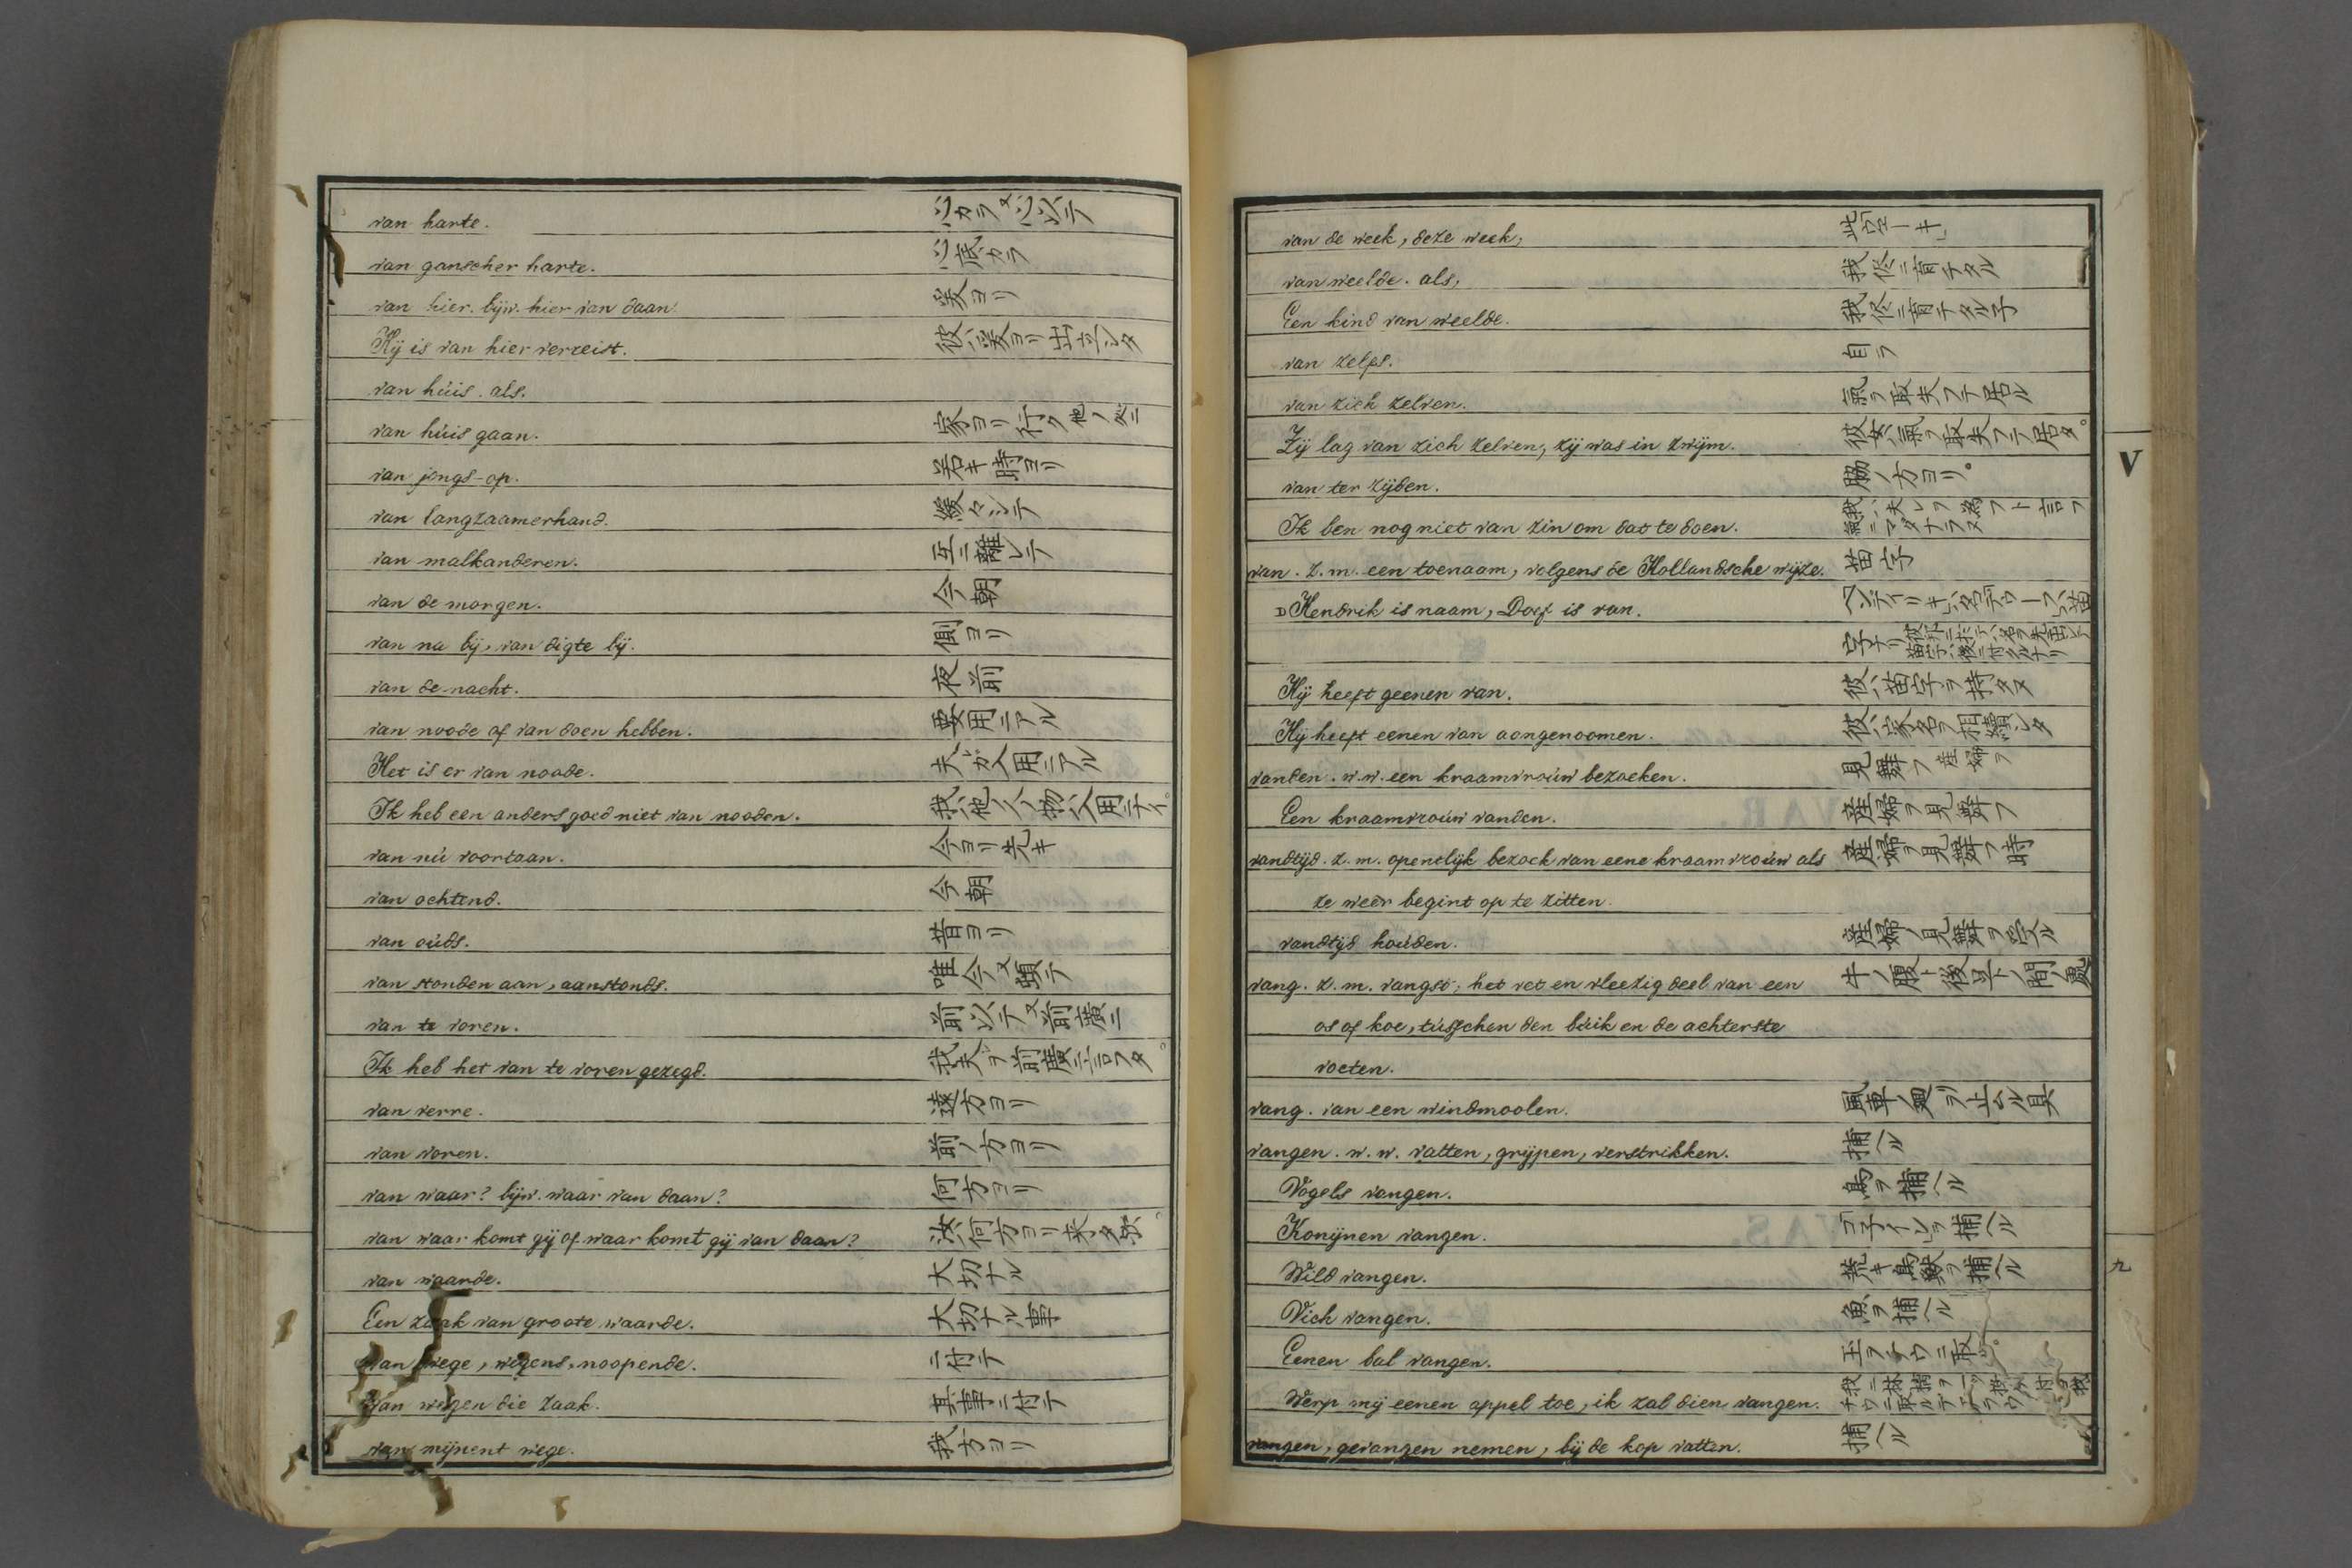 van harte. 心カラ 又心以テ
van ganscher harte. 心底カラ
van hier. bijw. hier van daan 爰ヨリ
Hij is van hier verreist. 彼ハ爰ヨリ出立シタ
van húis. als.
van húis gaan. 家ヨリ行ク他ノ処ニ
van jongs-op. 若キ時ヨリ
van langzaamerhand. 緩々シテ
van malkanderen. 互ニ離レテ
van de morgen. 今朝
van na bij, van digte bij. 側ヨリ
van de nacht. 夜前
van noode of van doen hebben. 要用ニアル
Het is er van noode. 夫レガ入用ニアル
Ik heb een anders goed niet van nooden. 我ハ他人ノ物ハ入用ニナイ。
van nú voortaan. 今ヨリ先キ
van ochtend. 今朝
van oúds. 昔ヨリ
van stonden aan, aanstonds. 唯今又頓テ
van te voren. 前以テ又前廣ニ
Ik heb het van te voren gezegd. 我夫レヲ前廣ニ言フタ。
van verre. 遠方ヨリ
van voren. 前ノ方ヨリ
van waar? bijw. waar van daan? 何方ヨリ
van waar komt gij of waar komt gij van daan? 汝ハ何方ヨリ来タ歟。
van waarde. 大切ナル
Een zaak van groote waarde. 大切ナル事
van wege, wegens, noopende. ニ付テ
Van wegen die zaak. 其事ニ付テ
van mijnent wege. 我方ヨリ
van de week, deze week,
van weelde. als, 我侭ニ育テタル
Een kind van weelde. 我侭ニ育テタル子
van zelfs. 自ラ
van zich zelven. 氣ヲ取失フテ居ル
Zij lag van zich zelven, zij was in zwijm. 彼女ハ氣ヲ取失フテ居タ。
van ter zijden. 脇ノ方ヨリ。
Ik ben nog niet van zin om dat te doen. 我ハ夫レヲ為フト言フ氣ニマダナラヌ
van. z. m. een toenaam, volgens de Hollandsche wijze. 苗字
D Hendrik is naam, Doef is van. ヘンデイリキハ名デウーフハ苗
字ナリ
Hij heeft geenen van. 彼ハ苗字ヲ持タヌ
Hij heeft eenen van aangenoomen. 彼ハ家名ヲ相續シタ
vanden. w. w. een kraamvroúw bezoeken. 見舞フ産婦ヲ
Een kraamvroúw vanden. 産婦ヲ見舞フ
vandtijd. z. m. opentlijk bezoek van eene kraamvroúw als 産婦ヲ見舞フ時
ze weêr begint op te zitten.
vandtijd hoúden. 産婦ノ見舞ヲ受ル
vang. z. m. vangst, het vet en vleezig deel van een 牛ノ腹ト後足トノ間ノ処
os of koe, tússchen den búik en de achterste
voeten.
vang. van een windmoolen. 風車ノ廻リヲ止ムル具
vangen. w. w. vatten, grijpen, verstrikken. 捕ヘル
Vogels vangen. 鳥ヲ捕ヘル
Konijnen vangen. コ子インヲ捕ヘル
Wild vangen. 荒キ鳥獣ヲ捕ヘル
Vich vangen. 魚ヲ捕ヘル
Eenen bal vangen. 玉ヲチウニ取ル。
Werp mij eenen appel toe, ik zal dien vangen.
vangen, gevangen nemen, bij de kop vatten. 捕ヘル
V
九